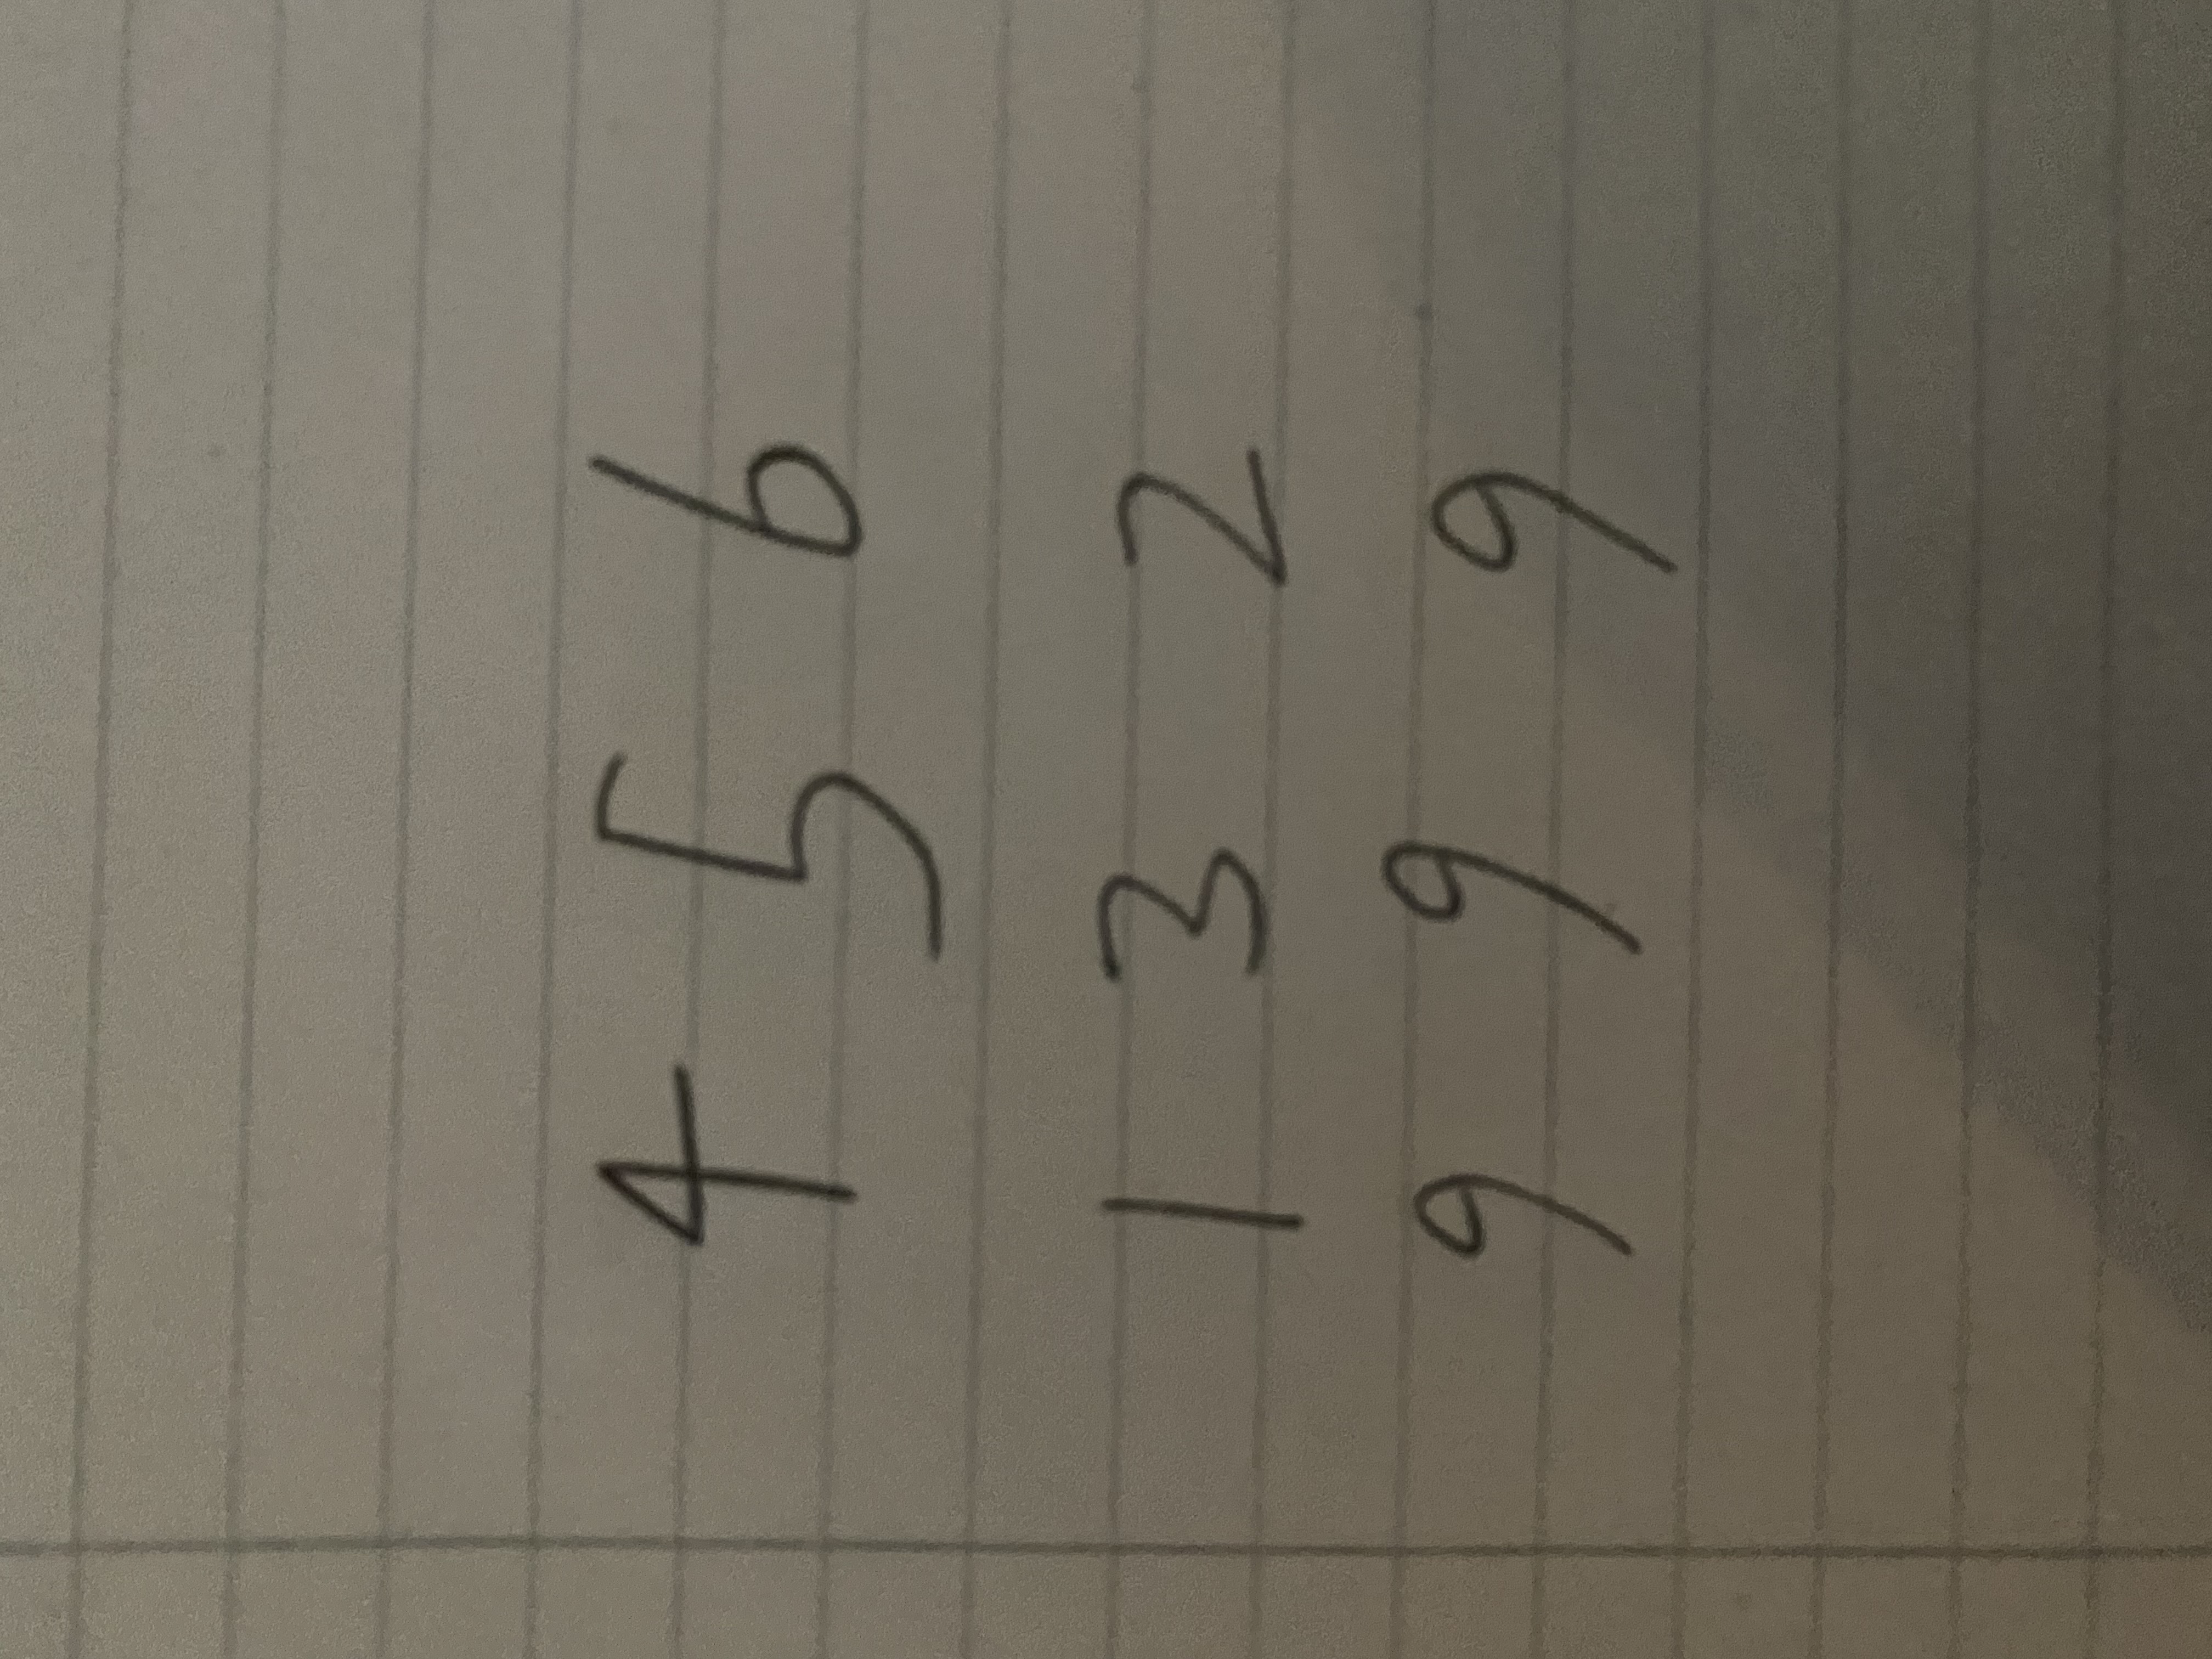 4 5 6
1 3 2
9 9 9